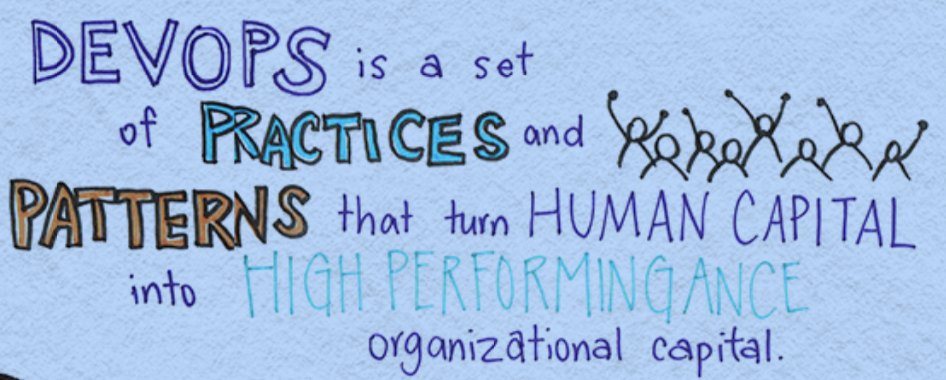 DEVOPS is a set
of PRACTICES and
PATTERNS that turn HUMAN CAPITAL
into HIGH PERFORMINGANCE
organizational capital.